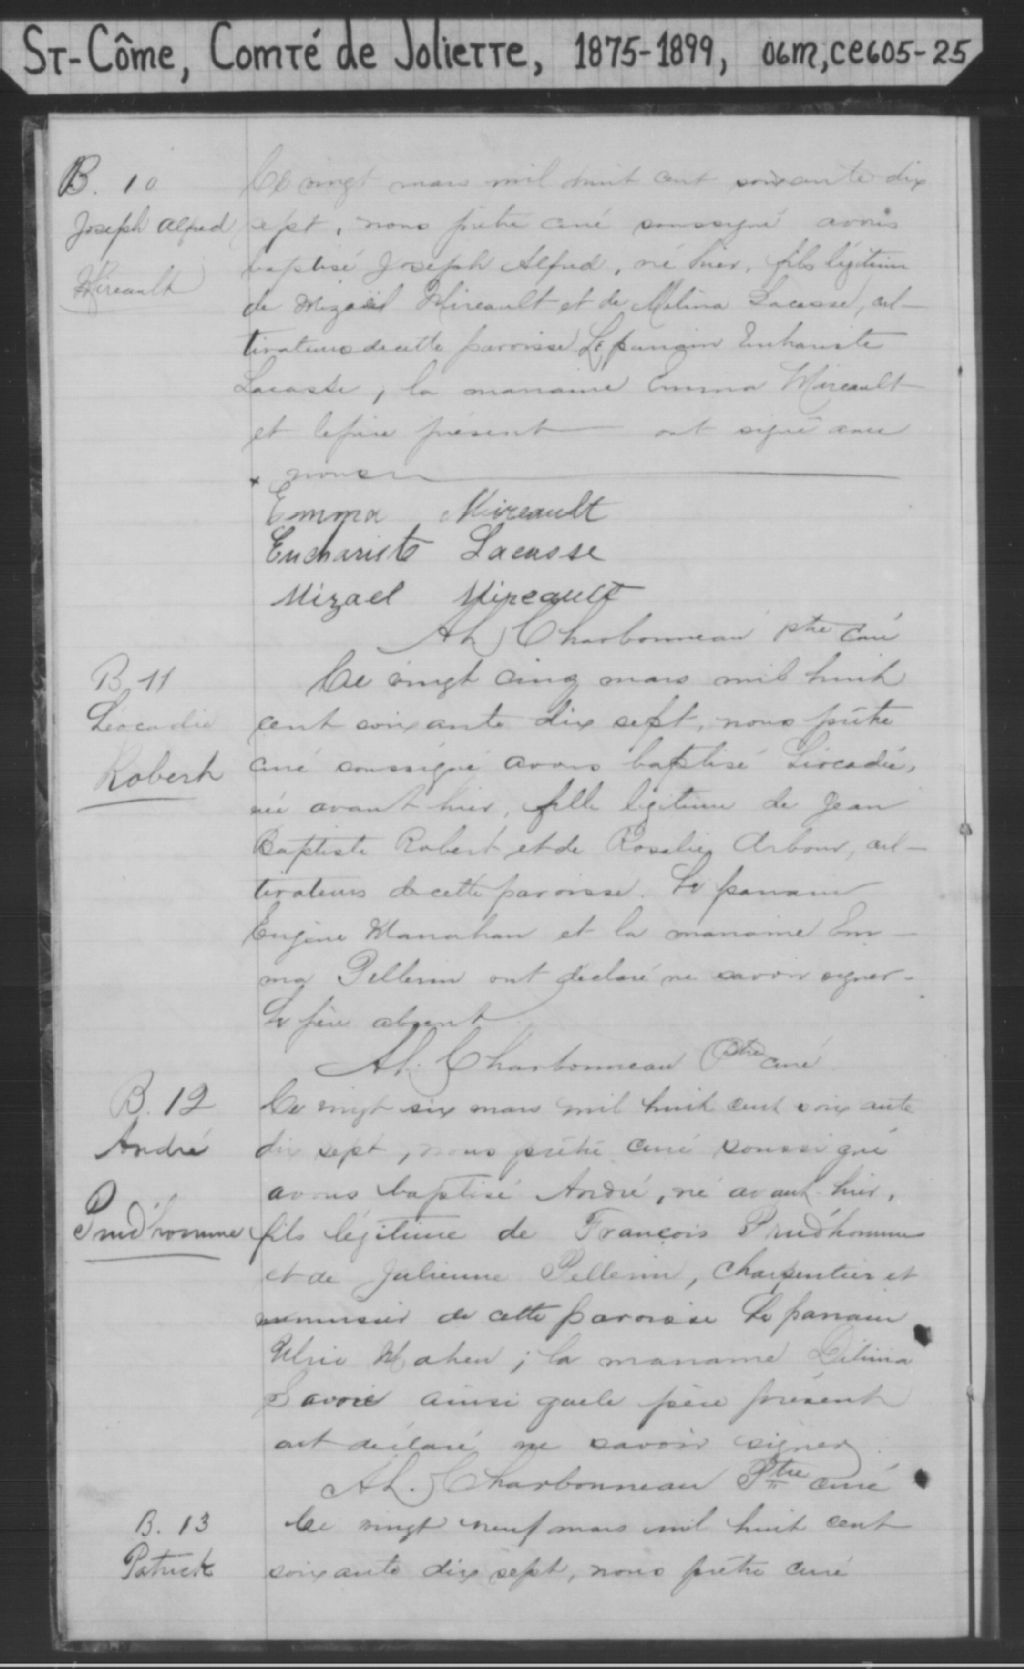 St-Côme, Comté de Joliette, 1875-1899, 06M,CE605-25
B. 10
Joseph Alfred
Mireault
Ce vingt mars mil huit cent soixante dix
sept, nous prêtre curé soussigné avons
baptisé Joseph Alfred, né hier, fils légitime
de Mizaël Mireault et de Mélina Lacasse, cul-
tivateurs de cette paroisse Le parrain Euchariste
Lacasse, la marraine Emma Mireault
et le père présent ont signé avec
nous
Emma Mireault
Euchariste Lacasse
Mizael Mireault
Al. Charbonneau ptre curé
B. 11
Léocadie
Robert
Ce vingt cinq mars mil huit
cent soixante dix sept, nous prêtre
curé soussigné avons baptisé Léocadie,
née avant hier, fille légitime de Jean
Baptiste Robert et de Rosalie Arbour, cul-
tivateurs de cette paroisse. Le parrain
Eugène Manahan et la marraine Em-
ma Pellerin ont déclaré ne savoir signer.
Le père absent
Al. Charbonneau Ptre curé
B. 12
André
Prud'homme
Ce vingt six mars mil huit cent soixante
dix sept, nous prêtre curé soussigné
avons baptisé André, né avant hier,
fils légitime de François Prud'homme
et de Julienne Pellerin, charpentier et
menuisier de cette paroisse Le parrain
Ulric Maheu ; la marraine Délima
Savoie ainsi que le père présent
ont déclaré ne savoir signer
Al. Charbonneau Ptre curé
B. 13
Patrick
Ce vingt neuf mars mil huit cent
soixante dix sept, nous prêtre curé